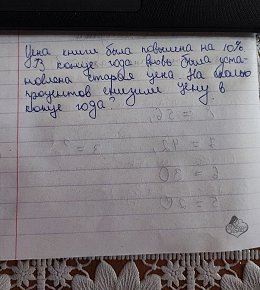 Цена книги была повышена на 10%.
В конце года вновь была уста-
новлена старая цена. На сколько
процентов снизили цену в
конце года?